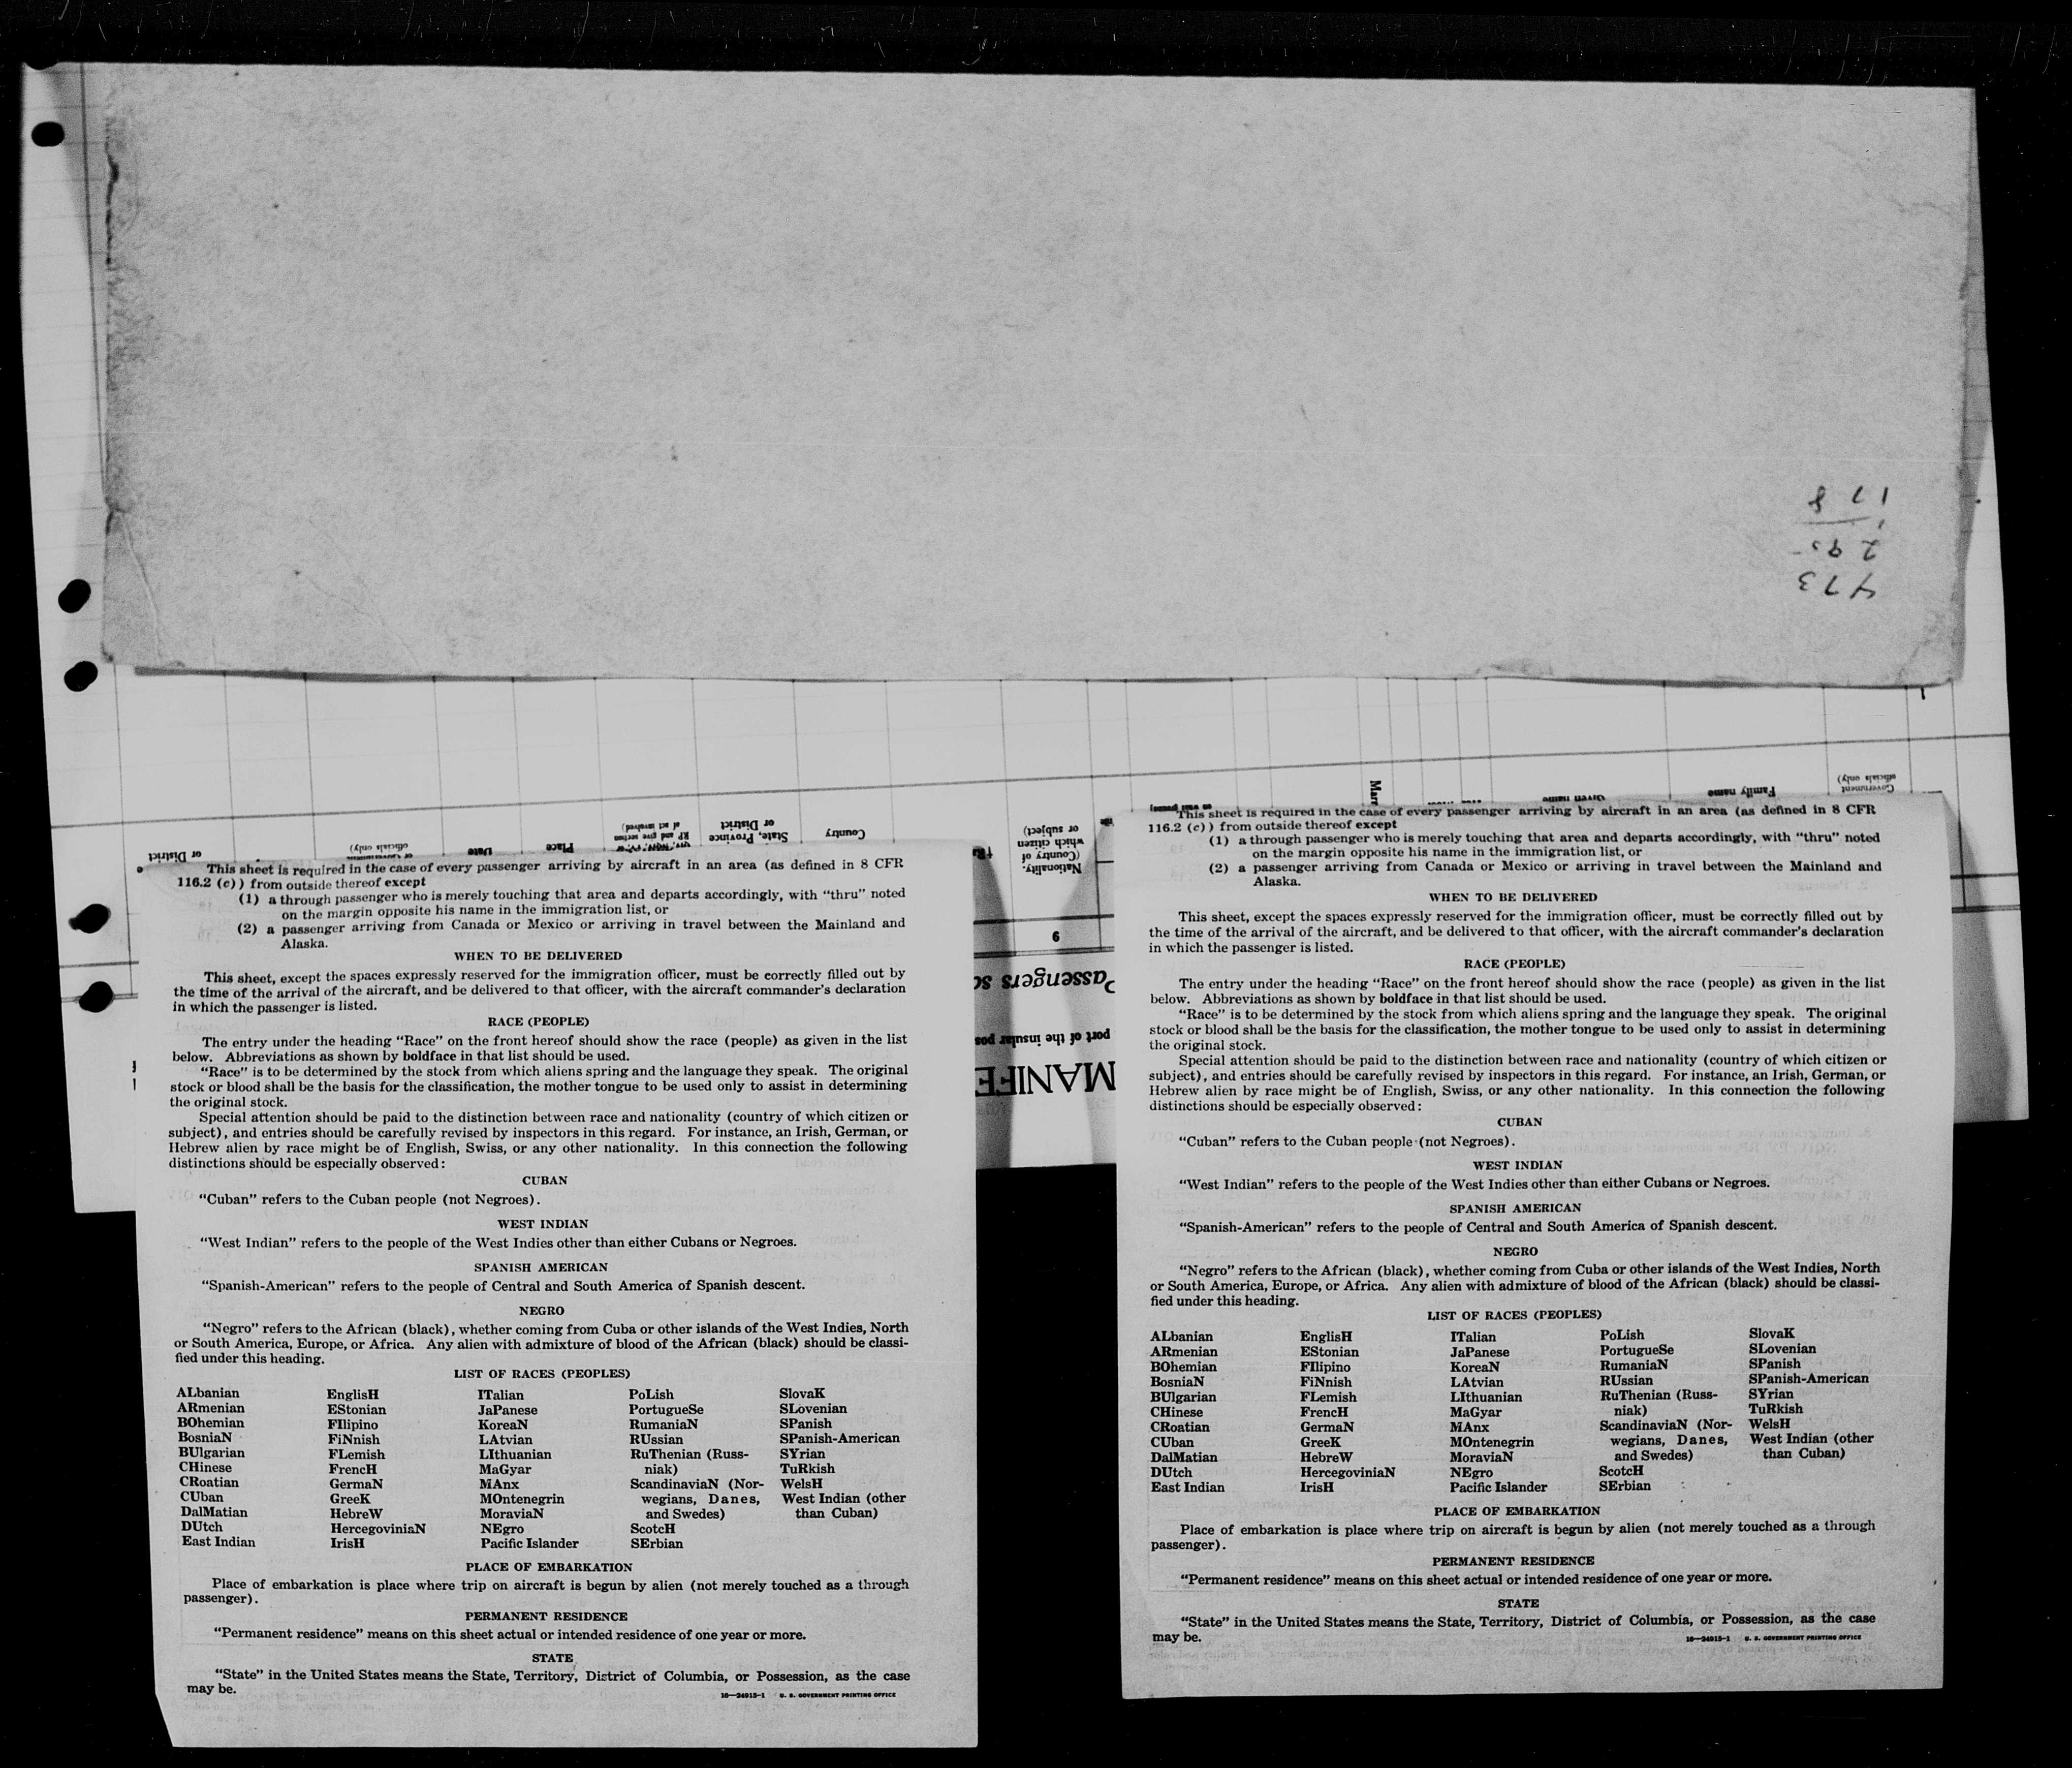 473
295
178
Government
officials only)
Family name
Given name
Marr
Country
State, Province
or District
RP and give section
of act involved)
Place
Date
officials only)
or District
Nationality.
(Country of
which citizen
or subject)
6
Passengers sa
port of the insular pos
MANIFE
This sheet is required in the case of every passenger arriving by aircraft in an area (as defined in 8 CFR
116.2 (c)) from outside thereof except
(1) a through passenger who is merely touching that area and departs accordingly, with “thru” noted
on the margin opposite his name in the immigration list, or
(2) a passenger arriving from Canada or Mexico or arriving in travel between the Mainland and
Alaska.
WHEN TO BE DELIVERED
This sheet, except the spaces expressly reserved for the immigration officer, must be correctly filled out by
the time of the arrival of the aircraft, and be delivered to that officer, with the aircraft commander’s declaration
in which the passenger is listed.
RACE (PEOPLE)
The entry under the heading “Race” on the front hereof should show the race (people) as given in the list
below. Abbreviations as shown by boldface in that list should be used.
“Race” is to be determined by the stock from which aliens spring and the language they speak. The original
stock or blood shall be the basis for the classification, the mother tongue to be used only to assist in determining
the original stock.
Special attention should be paid to the distinction between race and nationality (country of which citizen or
subject), and entries should be carefully revised by inspectors in this regard. For instance, an Irish, German, or
Hebrew alien by race might be of English, Swiss, or any other nationality. In this connection the following
distinctions should be especially observed:
CUBAN
“Cuban” refers to the Cuban people (not Negroes).
WEST INDIAN
“West Indian” refers to the people of the West Indies other than either Cubans or Negroes.
SPANISH AMERICAN
“Spanish-American” refers to the people of Central and South America of Spanish descent.
NEGRO
“Negro” refers to the African (black), whether coming from Cuba or other islands of the West Indies, North
or South America, Europe, or Africa. Any alien with admixture of blood of the African (black) should be classi-
fied under this heading.
LIST OF RACES (PEOPLES)
ALbanian
ARmenian
BOhemian
BosniaN
BUlgarian
CHinese
CRoatian
CUban
DalMatian
DUtch
East Indian
EnglisH
EStonian
FIlipino
FiNnish
FLemish
FrencH
GermaN
GreeK
HebreW
HercegoviniaN
IrisH
ITalian
JaPanese
KoreaN
LAtvian
LIthuanian
MaGyar
MAnx
MOntenegrin
MoraviaN
NEgro
Pacific Islander
PoLish
PortugueSe
RumaniaN
RUssian
RuThenian (Russ-
niak)
ScandinaviaN (Nor-
wegians, Danes,
and Swedes)
ScotcH
SErbian
SlovaK
SLovenian
SPanish
SPanish-American
SYrian
TuRkish
WelsH
West Indian (other
than Cuban)
PLACE OF EMBARKATION
Place of embarkation is place where trip on aircraft is begun by alien (not merely touched as a through
passenger).
PERMANENT RESIDENCE
“Permanent residence” means on this sheet actual or intended residence of one year or more.
STATE
“State” in the United States means the State, Territory, District of Columbia, or Possession, as the case
may be.
16—24915-1 U. S. GOVERNMENT PRINTING OFFICE
This sheet is required in the case of every passenger arriving by aircraft in an area (as defined in 8 CFR
116.2 (c)) from outside thereof except
(1) a through passenger who is merely touching that area and departs accordingly, with “thru” noted
on the margin opposite his name in the immigration list, or
(2) a passenger arriving from Canada or Mexico or arriving in travel between the Mainland and
Alaska.
WHEN TO BE DELIVERED
This sheet, except the spaces expressly reserved for the immigration officer, must be correctly filled out by
the time of the arrival of the aircraft, and be delivered to that officer, with the aircraft commander’s declaration
in which the passenger is listed.
RACE (PEOPLE)
The entry under the heading “Race” on the front hereof should show the race (people) as given in the list
below. Abbreviations as shown by boldface in that list should be used.
“Race” is to be determined by the stock from which aliens spring and the language they speak. The original
stock or blood shall be the basis for the classification, the mother tongue to be used only to assist in determining
the original stock.
Special attention should be paid to the distinction between race and nationality (country of which citizen or
subject), and entries should be carefully revised by inspectors in this regard. For instance, an Irish, German, or
Hebrew alien by race might be of English, Swiss, or any other nationality. In this connection the following
distinctions should be especially observed:
CUBAN
“Cuban” refers to the Cuban people (not Negroes).
WEST INDIAN
“West Indian” refers to the people of the West Indies other than either Cubans or Negroes.
SPANISH AMERICAN
“Spanish-American” refers to the people of Central and South America of Spanish descent.
NEGRO
“Negro” refers to the African (black), whether coming from Cuba or other islands of the West Indies, North
or South America, Europe, or Africa. Any alien with admixture of blood of the African (black) should be classi-
fied under this heading.
LIST OF RACES (PEOPLES)
ALbanian
ARmenian
BOhemian
BosniaN
BUlgarian
CHinese
CRoatian
CUban
DalMatian
DUtch
East Indian
EnglisH
EStonian
FIlipino
FiNnish
FLemish
FrencH
GermaN
GreeK
HebreW
HercegoviniaN
IrisH
ITalian
JaPanese
KoreaN
LAtvian
LIthuanian
MaGyar
MAnx
MOntenegrin
MoraviaN
NEgro
Pacific Islander
PoLish
PortugueSe
RumaniaN
RUssian
RuThenian (Russ-
niak)
ScandinaviaN (Nor-
wegians, Danes,
and Swedes)
ScotcH
SErbian
SlovaK
SLovenian
SPanish
SPanish-American
SYrian
TuRkish
WelsH
West Indian (other
than Cuban)
PLACE OF EMBARKATION
Place of embarkation is place where trip on aircraft is begun by alien (not merely touched as a through
passenger).
PERMANENT RESIDENCE
“Permanent residence” means on this sheet actual or intended residence of one year or more.
STATE
“State” in the United States means the State, Territory, District of Columbia, or Possession, as the case
may be.
16—24915-1 U. S. GOVERNMENT PRINTING OFFICE